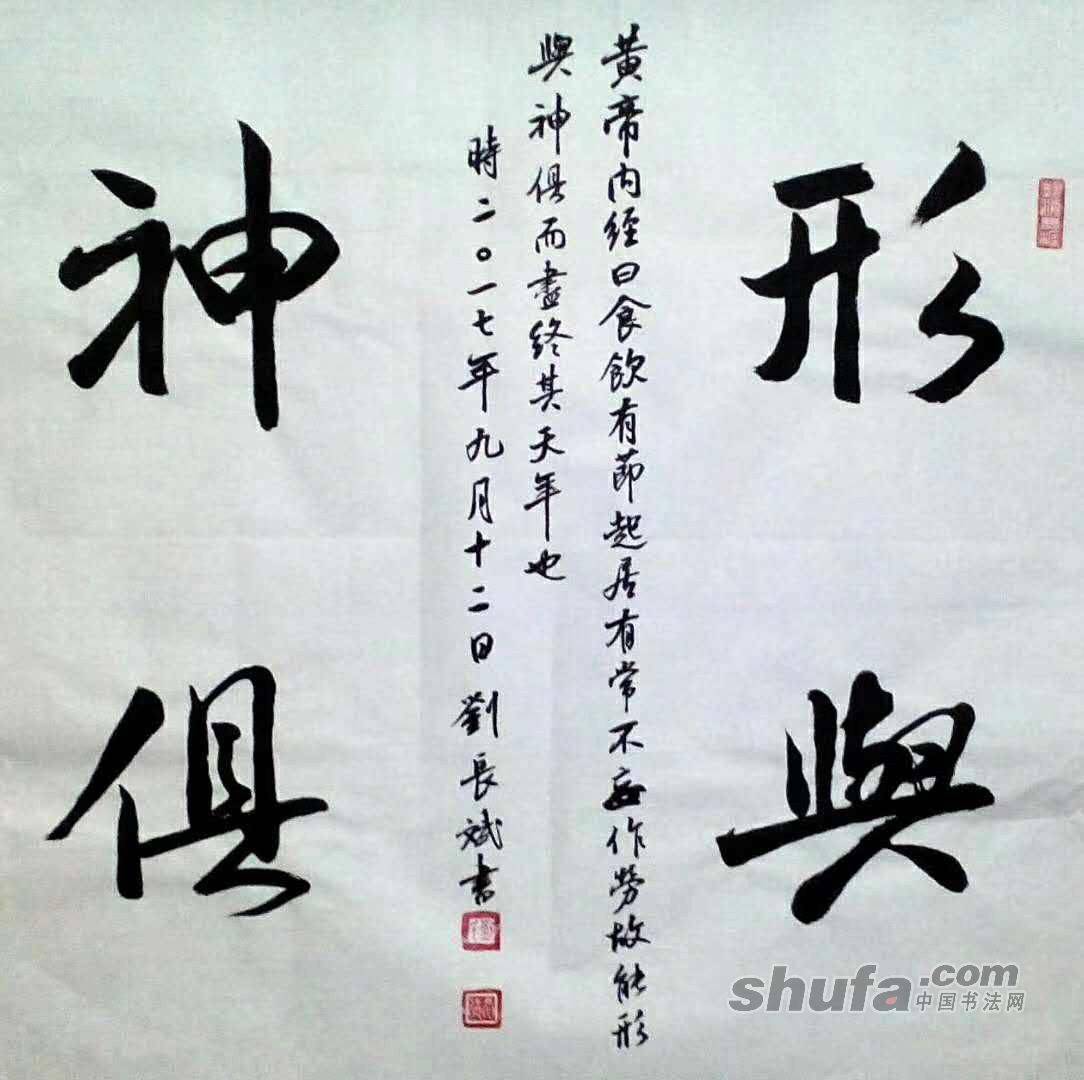 形與
神俱
黄帝内經曰食飲有節起居有常不妄作勞故能形
與神俱而盡終其天年也
時二〇一七年九月十二日劉長斌書
shufa.com
中国书法网